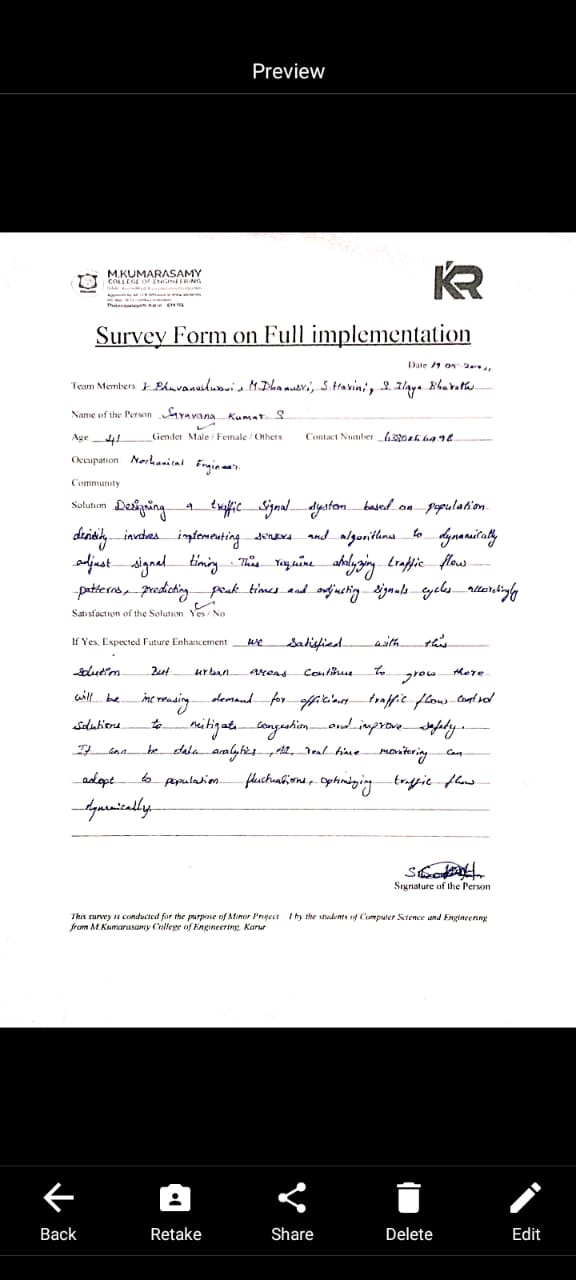 Preview
M.KUMARASAMY
COLLEGE OF ENGINEERING
KR
Survey Form on Full implementation
Date 19 05
Team Members J. Bhuvaneshwari, M.Dhanusri, S.Harini, S. Ilaya Bharath
Name of the Person Saravana Kumar S
Age 41 Gender Male / Female / Others Contact Number
Occupation Mechanical Engineer.
Community
Solution Designing a traffic signal system based on population
density involves implementing sensors and algorithms to dynamically
adjust signal timing. This require analyzing traffic flow
patterns, predicting peak times and adjucting signals cycles accordingly
Satisfaction of the Solution Yes / No
If Yes, Expected Future Enhancement we satisfied with this
solution but urban areas continue to grow there
will be increasing demand for efficient traffic flow control
solutions to mitigate congestion and improve safety.
It can be data analytics, real time monitoring can
adopt to population fluctuations, optimizing traffic flow
dynamically.
Signature of the Person
This survey is conducted for the purpose of Minor Project I by the students of Computer Science and Engineering
from M.Kumarasamy College of Engineering, Karur
Back Retake Share Delete Edit